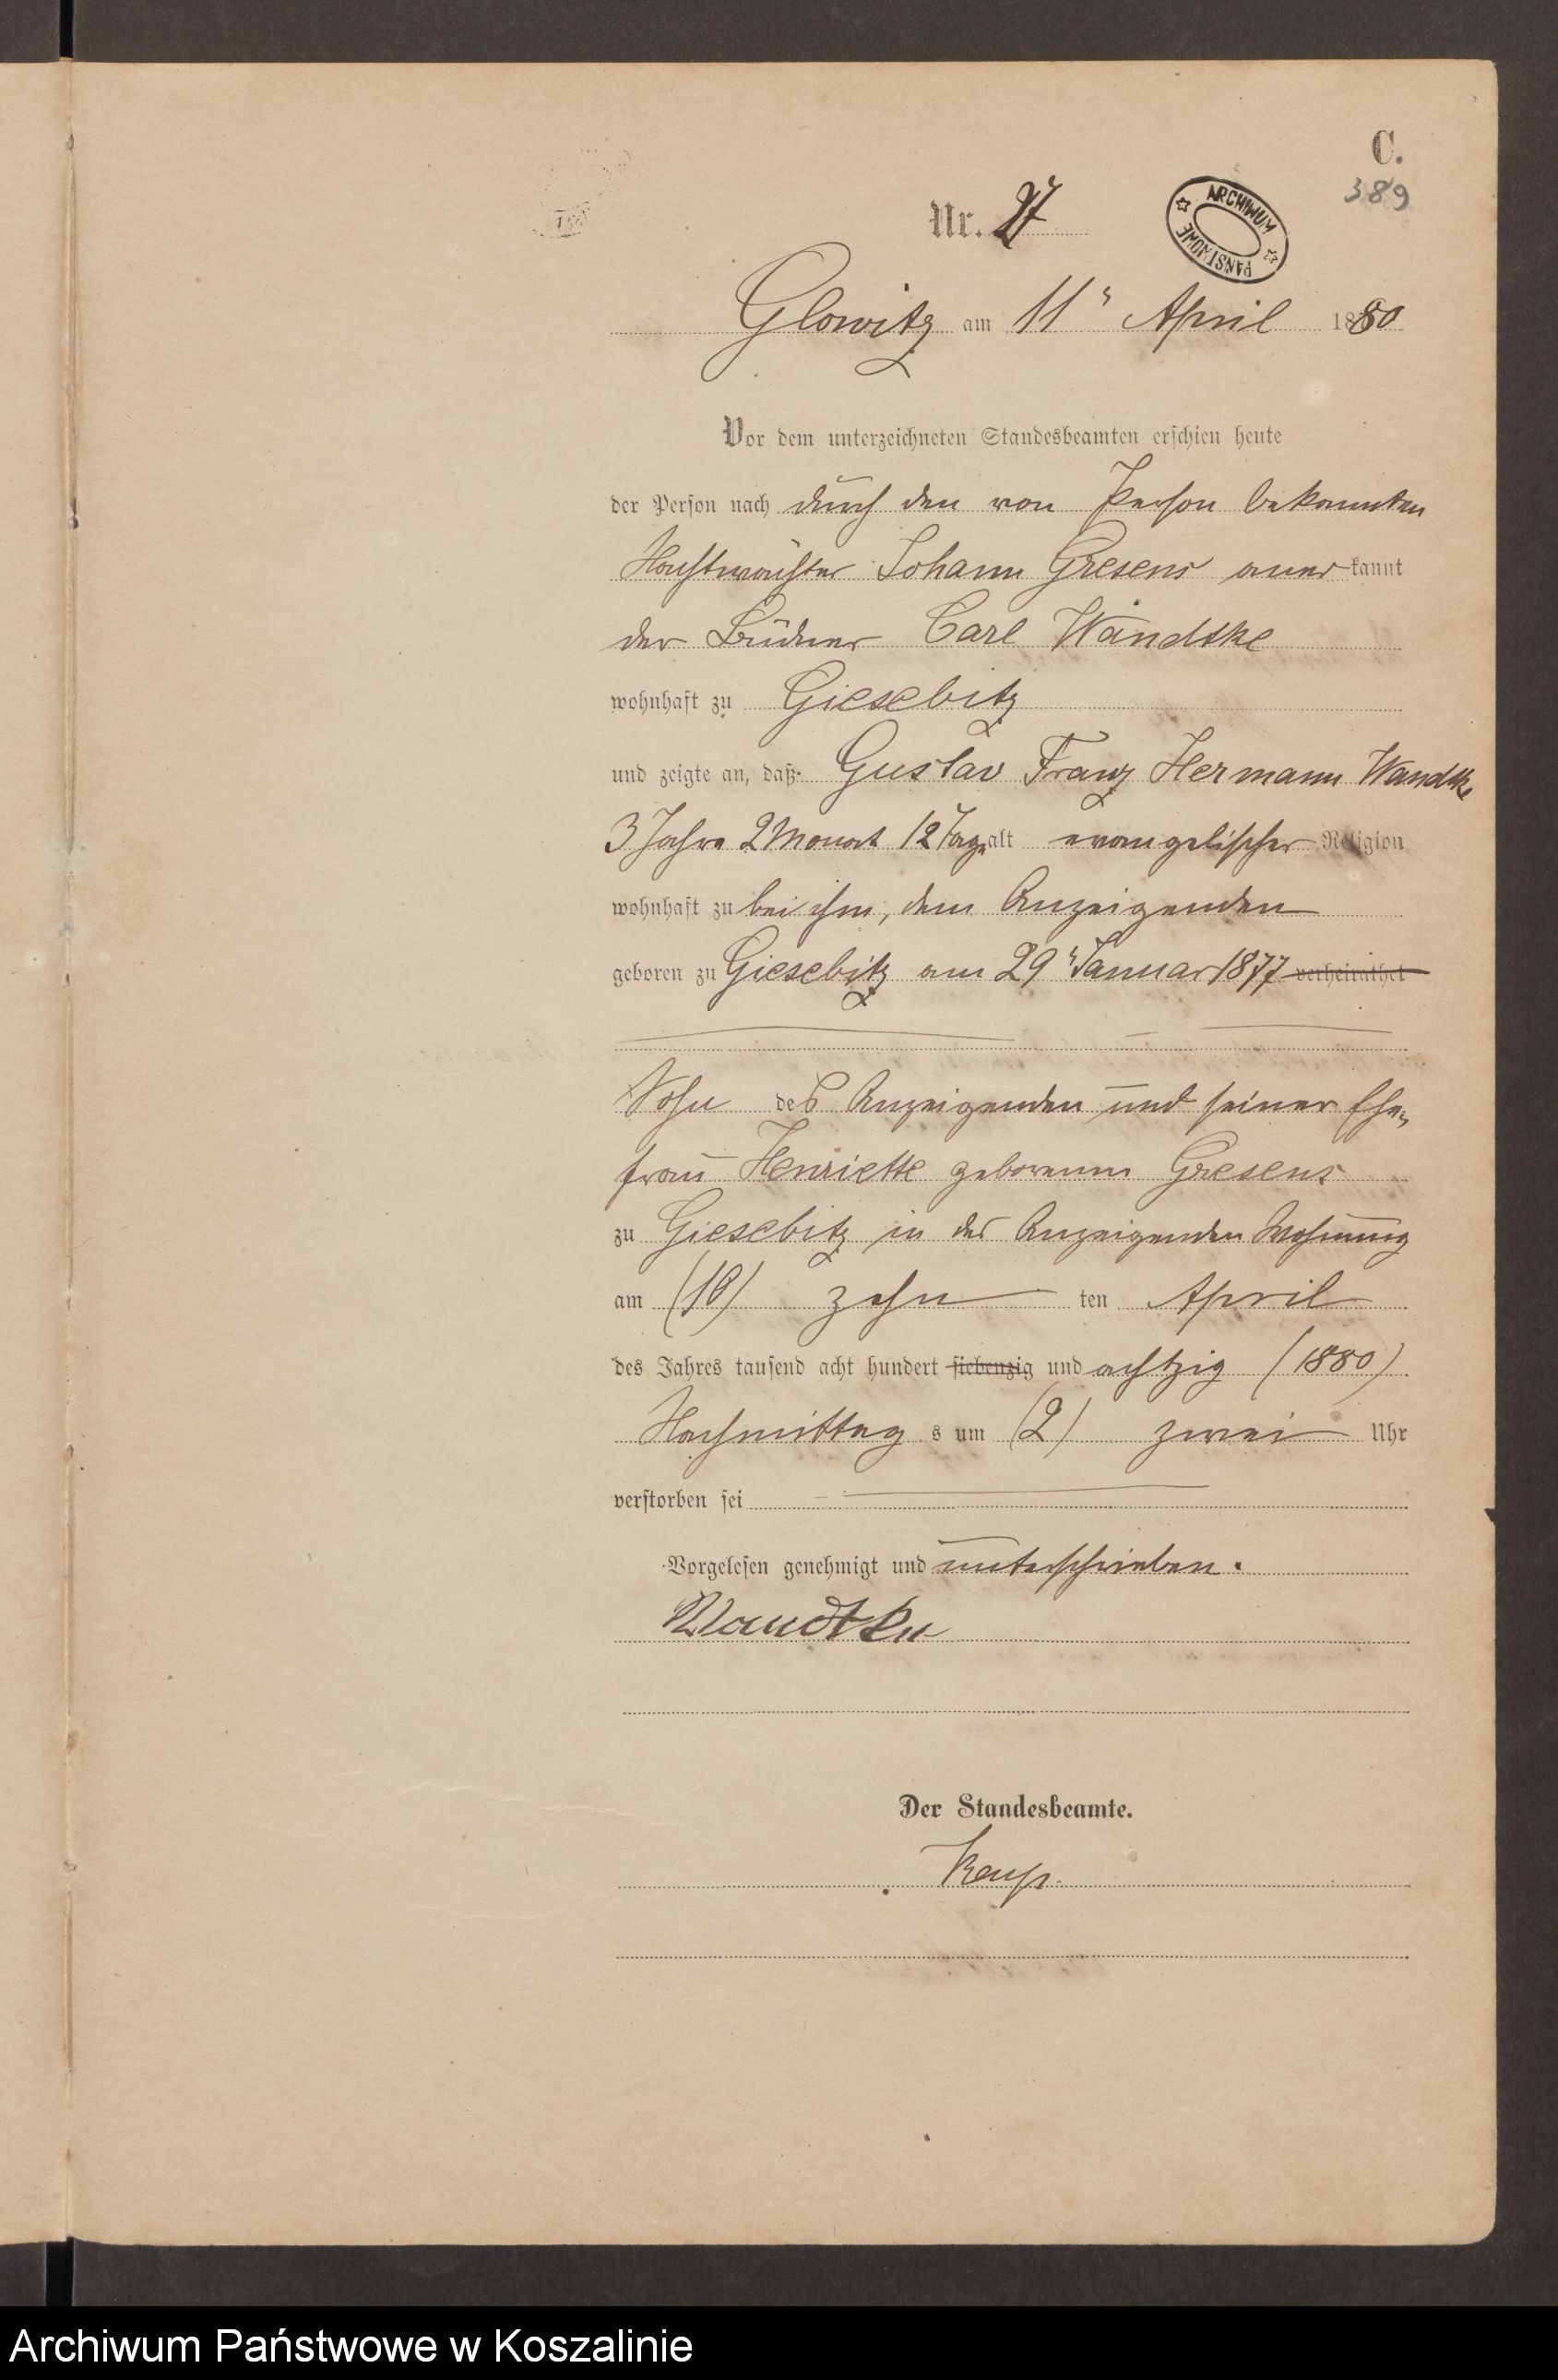 C.
389
Nr. 27
ARCHIWUM PAŃSTWOWE
Glowitz am 11ᵗ April 1880
Vor dem unterzeichneten Standesbeamten erschien heute
der Person nach durch den von Person bekannten
Johann Gresens anerkannt
der Büdner Carl Wandtke
wohnhaft zu Giesebitz
und zeigte an, daß Gustav Franz Hermann Wandtke
3 Jahre 2 Monat 12 Tage alt evangelischer Religion
wohnhaft zu bei ihm, dem Anzeigenden
geboren zu Giesebitz am 29ᵗ Januar 1877 verheirathet
Sohn des Anzeigenden und seiner Ehe-
frau Henriette geborenen Gresens
zu Giesebitz in des Anzeigenden Wohnung
am (10) zehn ten April
des Jahres tausend acht hundert siebenzig und achtzig (1880)
Nachmittag s um (2) zwei Uhr
verstorben sei
Vorgelesen genehmigt und unterschrieben.
Wandtke
Der Standesbeamte.
Archiwum Państwowe w Koszalinie